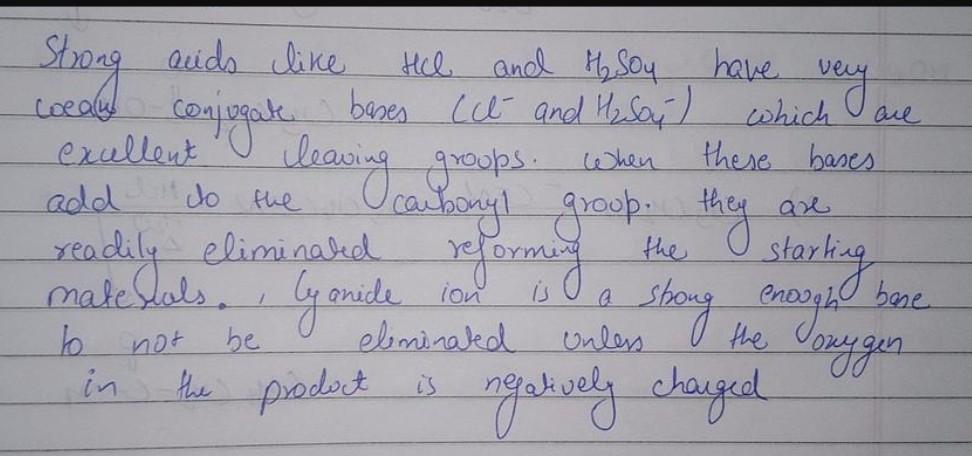 Strong acids like HCl and H₂SO₄ have very
weak conjugate bases (Cl⁻ and H₂SO₄⁻) which are
excellent leaving groups. When these bases
add to the carbonyl group. they are
readily eliminated reforming the starting
materials. , Cyanide ion is a strong enough base
to not be eliminated unless the oxygen
in the product is negatively charged